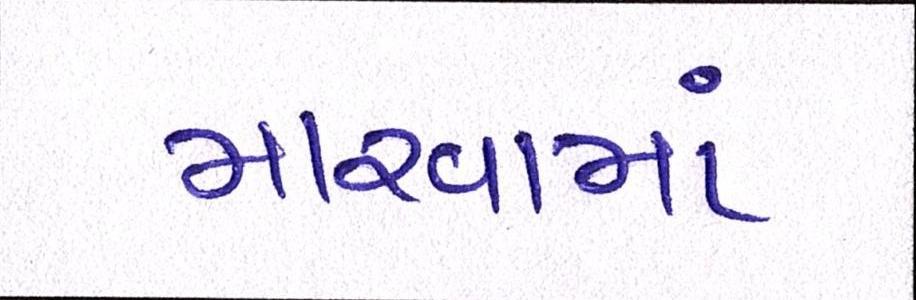 મારવામાં